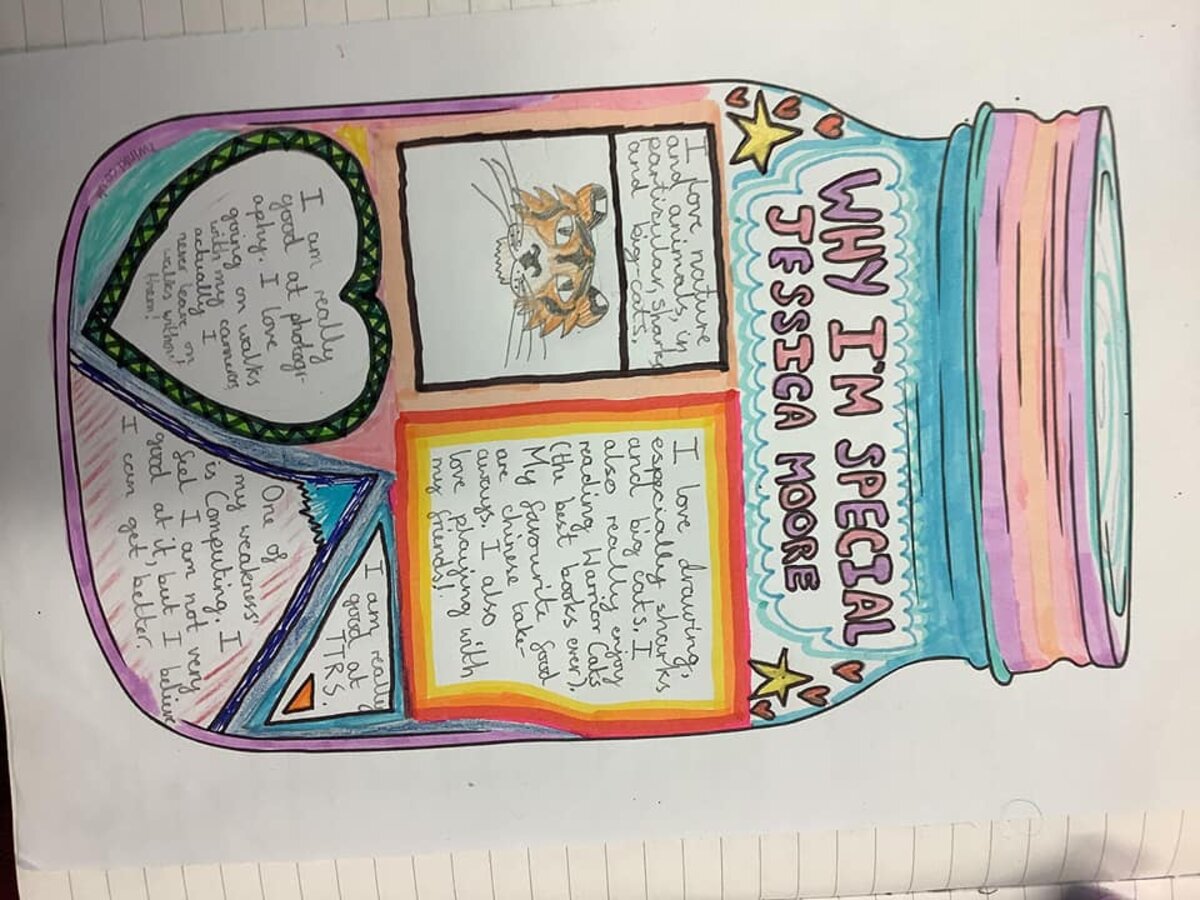 WHY I'M SPECIAL
JESSICA MOORE
I love nature
and animals, in
particular, sharks
and big-cats.
I love drawing,
especially sharks
and big cats. I
also really enjoy
reading Warrior Cats
(the best books ever).
My favourite food
are chinese take-
aways. I also
love playing with
my friends!
I am really
good at photogr-
aphy. I love
going on walks
with my camera,
actually I
never leave on
walks without
them!
I am really
good at
TTRS.
One of
my weakness
is Computing. I
feel I am not very
good at it, but I believe
I can get better.
twinkl.co.uk